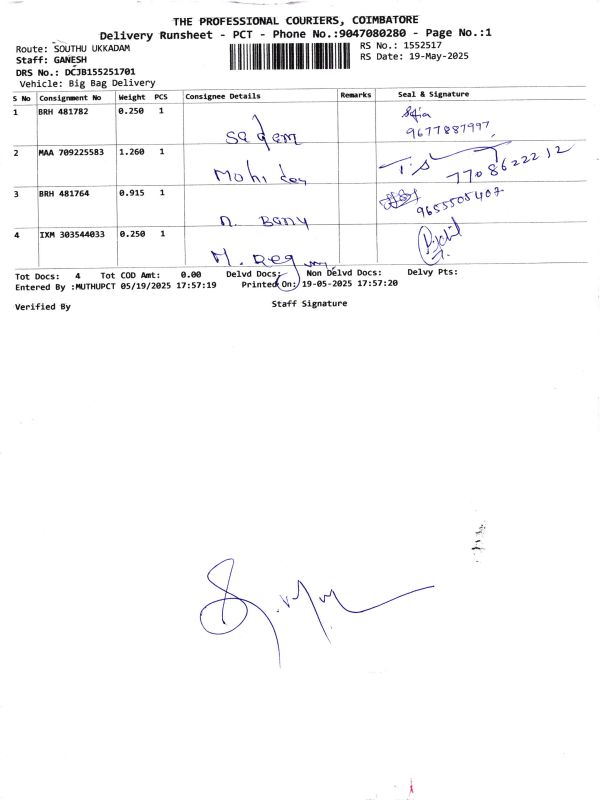 THE PROFESSIONAL COURIERS, COIMBATORE
Delivery Runsheet - PCT - Phone No.:9047080280 - Page No.:1
Route: SOUTHU UKKADAM
RS No.: 1552517
Staff: GANESH
RS Date: 19-May-2025
DRS No.: DCJB155251701
Vehicle: Big Bag Delivery
S No Consignment No Weight PCS Consignee Details Remarks Seal & Signature
1 BRH 481782 0.250 1 Sadam
9677887997
2 MAA 709225583 1.260 1 Mohi T.S 7708622212
3 BRH 481764 0.915 1 n. Banu 9655505407
4 IXM 303544033 0.250 1 M.
Tot Docs: 4 Tot COD Amt: 0.00 Delvd Docs: Non Delvd Docs: Delvy Pts:
Entered By :MUTHUPCT 05/19/2025 17:57:19 Printed On: 19-05-2025 17:57:20
Verified By Staff Signature